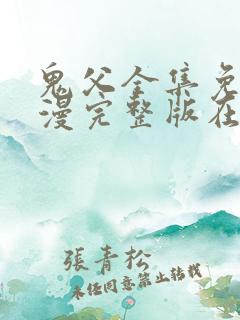 鬼父全集免
漫完整版在
張青松
未经同意禁止转载